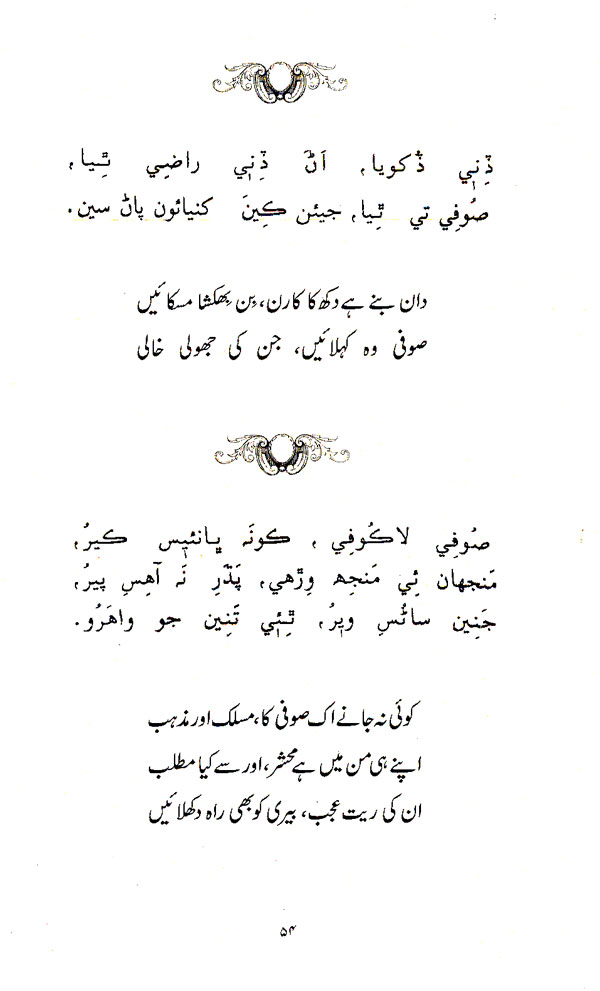 ڏِنِي ڏُکويا، اَڻَ ڏِنِي راضِي ٿِيا،
صُوفِي تي ٿِيا، جيئن ڪِينَ کنيائون پاڻ سين.
دان بنے ہے دکھ کا کارن، بِن بِھکشا مسکائیں
صوفی وہ کہلائیں، جن کی جھولی خالی
صُوفِي لاڪُوفِي ، ڪونَہ ڀانئيس ڪيرُ،
مَنجهان ئِي مَنجھ وِڙهي، پَڌَرِ نَہ آهِس پيرُ،
جَنِين ساڻُسِ ويرُ، ٿِئي تَنِين جو واهَرُو.
کوئی نہ جانے اک صوفی کا، مسلک اور مذہب
اپنے ہی من میں ہے محشر، اور سے کیا مطلب
ان کی ریت عجب، بیری کو بھی راہ دکھلائیں
۵۴